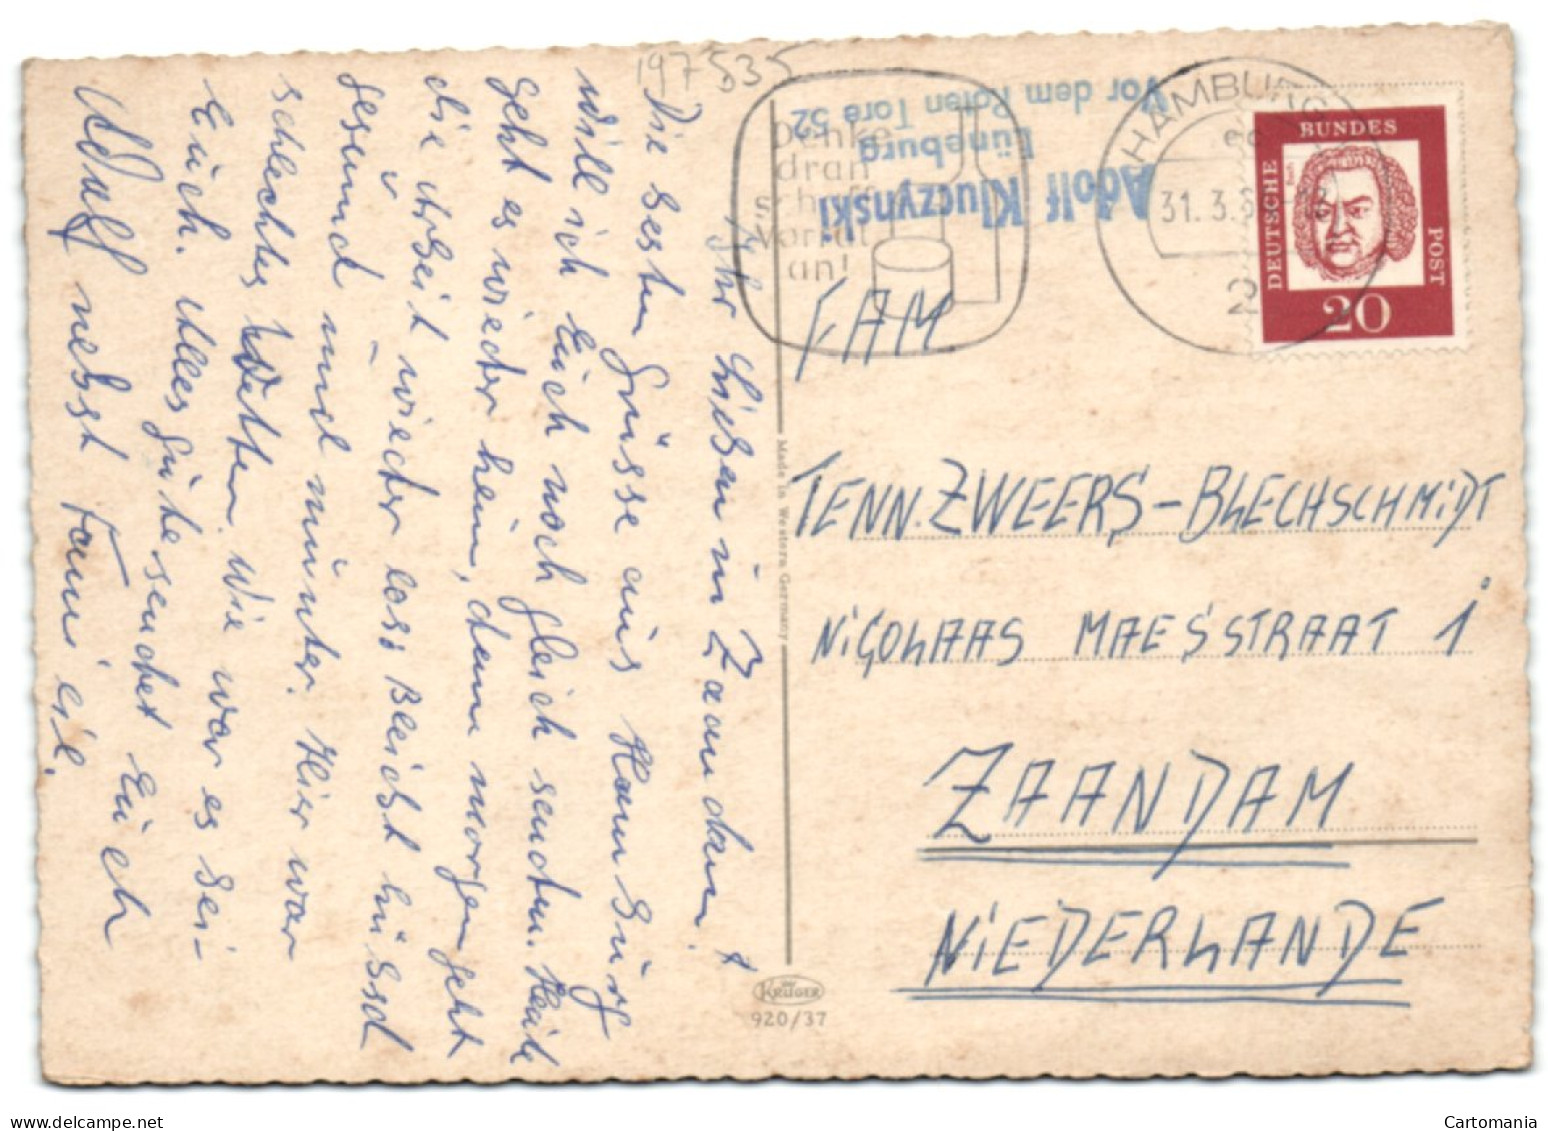 197535
Ihr Lieben in Zaandam!
Die besten Grüsse aus Hamburg
will ich Euch noch gleich senden. Heute
geht es wieder heim, denn morgen geht
die Arbeit wieder loss Beicht hüssd
gesund und munter. Hier war
schlechtes Wetter. Wie war es bei
Euch. Alles Gute sendet Euch
Adolf nebst Familie.
Adolf Kluczynski
Lüneburg
Vor dem Roten Tore 52
Denke
dran
schaff
Vorrat
an!
HAMBURG
31.3.6
2
DEUTSCHE
BUNDES
POST
20
FAM
TENN. ZWEERS-BLECHSCHMIDT
NICOLAAS MAESSTRAAT 1
ZAANDAM
NIEDERLANDE
Made in Western Germany
KRÜGER
920/37
delcampe.net
Cartomania